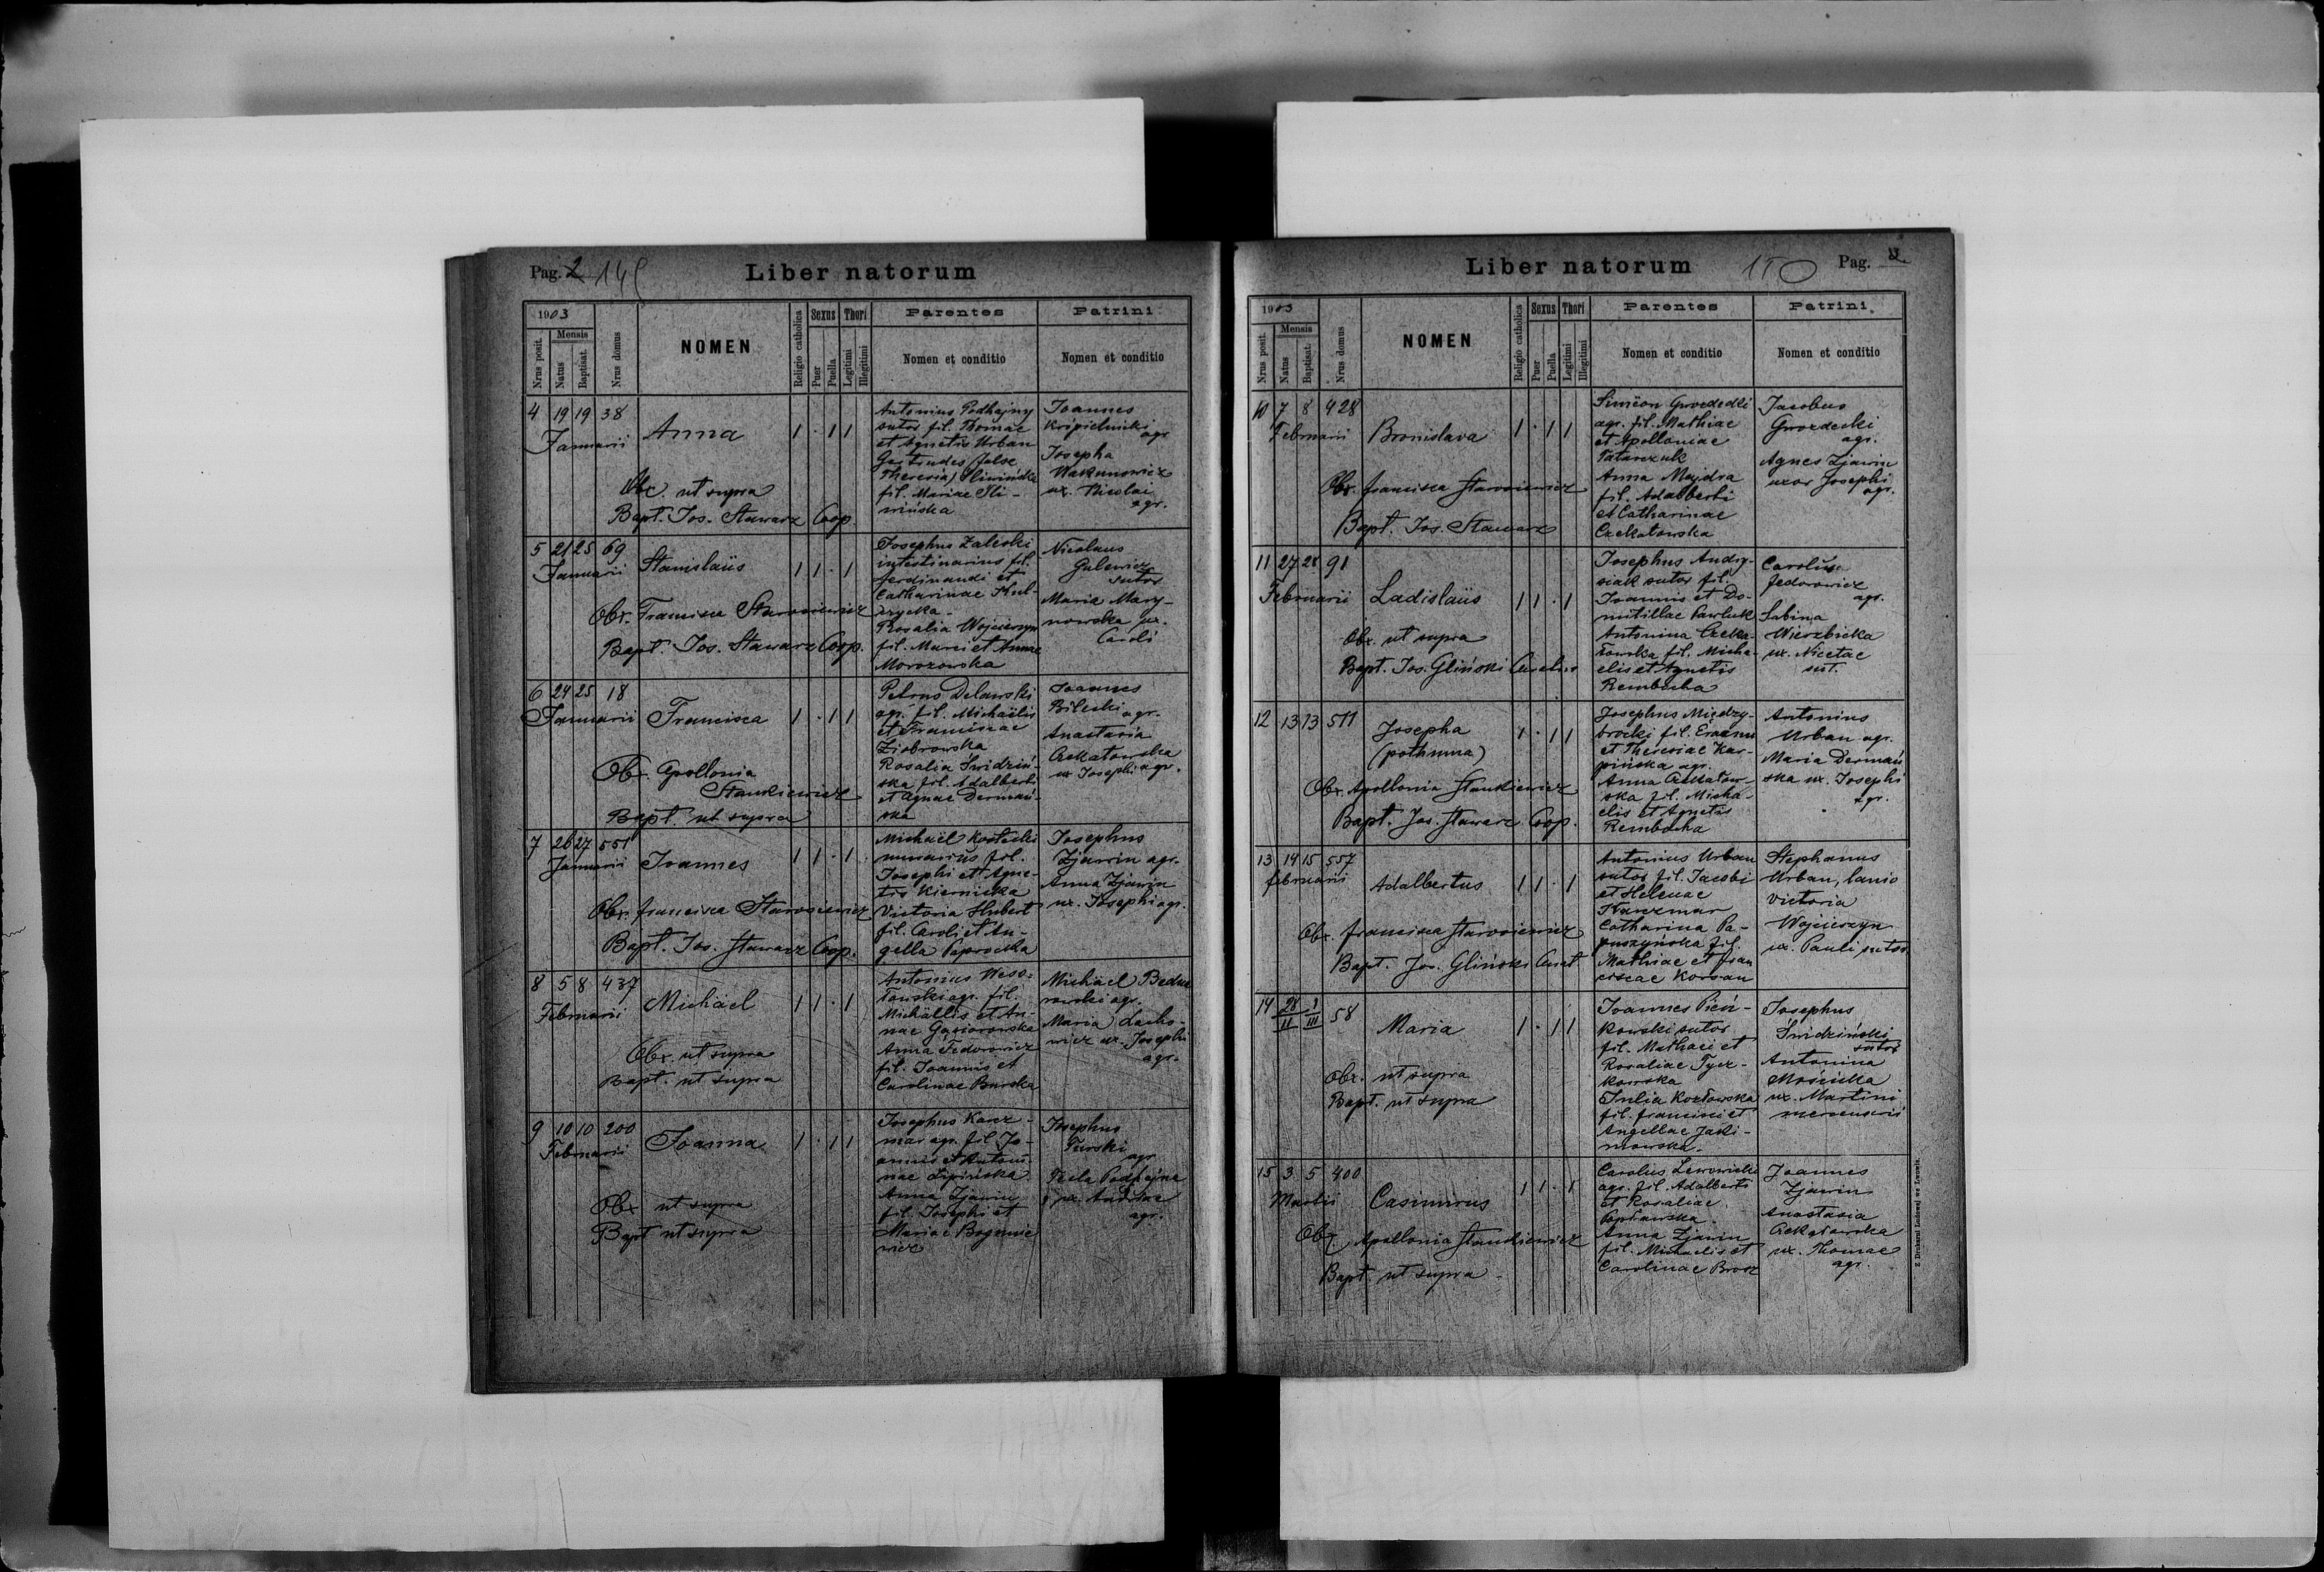 Pag. 2 149
Liber natorum
1903
Nrus posit.
Mensis
Natus
Baptisat.
Nrus domus
NOMEN
Religio catholica
Sexus
Puer
Puella
Thori
Legitimi
Illegitimi
Parentes
Nomen et conditio
Patrini
Nomen et conditio
4 19 19 38
Januarii
Anna
1 . 1 1
Obx. ut supra
Bapt. Jos. Stawarz Coop.
Antonius Podhajny
sutor fil. Thomae
et Agnetis Urban
Gertrudes false
Theresia) Śliwińska
fil. Mariae Śli-
wińska
Joannes
agr.
Josepha
ux. Nicolai
agr.
5 21 25 69
Januarii
Stanislaüs
1 1 . 1
Obx. Francisca Starosiewicz
Bapt. Jos. Stawarz Coop.
Josephus Zaleski
intestinarius fil.
Ferdinandi et
Catharinae Kul-
czycka.
Rosalia Wojcieszyn
fil. Marci et Annae
Morozowska
Nicolaus
Gulewicz
sutor
Maria Mary-
nowska ux.
Caroli
6 24 25 18
Januarii
Francisca
1 . 1 1
Obx. Apollonia
Stankiewicz
Bapt. ut supra
Petrus Delawski
agr. fil. Michaëlis
et Franciscae
Ziobrowska
Rosalia Świdziń-
ska fil. Adalberti
et Agnae Dermań-
ska
Joannes
Bilecki agr.
Anastasia
Czekatowska
ux Josephi agr.
7 26 27 551
Januarii
Joannes
1 1 . 1
Obx. Francisca Starosiewicz
Bapt. Jos. Stawarz Coop.
Michaël Kostecki
murarius fil.
Josephi et Agne-
tis Kiernicka
Victoria Hubert
fil. Caroli et An-
gella Paprocka
Josephus
Zjawin agr.
Anna Zjawin
ux. Josephi agr.
8 5 8 437
Februarii
Michäel
1 1 . 1
Obx. ut supra
Bapt. ut supra
Antonius Weso-
łowski agr. fil.
Michäelis et An-
nae Gąsiorowska
Anna Fedorowicz
fil. Joannis et
Carolinae Burska
Michäel Bedna
rowski agr.
Maria Lacho-
wicz ux. Josephi
agr.
9 10 10 200
Februarii
Joanna
1 . 1 1
Obx ut supra
Bapt ut supra
Josephus Karcz-
mar agr. fil Jo-
annis et Antoni-
nae Lipińska
Anna Zjawin
fil. Josephi et
Mariae Bogusie
wicz
Josephus
Turski
agr
Tecla Podhajna
ux. Andreae
agr.
Liber natorum
150
Pag. 3.
1903
Nrus posit.
Mensis
Natus
Baptisat.
Nrus domus
NOMEN
Religio catholica
Sexus
Puer
Puella
Thori
Legitimi
Illegitimi
Parentes
Nomen et conditio
Patrini
Nomen et conditio
10 7 8 428
Februarii
Bronislava
1 . 1 1
Obx. Francisca Starosiewicz
Bapt. Jos. Stawarz
Simëon Gwozdecki
agr. fil. Mathiae
et Apolloniae
Tatarczuk
Anna Majdra
fil. Adalberti
et Catharinae
Czekatowska
Jacobus
Gwozdecki
agr.
Agnes Zjawin
uxor Josephi
agr.
11 27 28 91
Februarii
Ladislaüs
1 1 . 1
Obx. ut supra
Bapt. Jos. Gliński Curatus
Josephus Andry-
siak sutor fil.
Joannis et Do-
mitillae Pawluk
Antonina Czeka-
towska fil. Micha-
elis et Agnetis
Rembocha
Fedorowicz
agr.
Sabina
Wierzbicka
ux. Nicetae
sut.
12 13 13 511
Josepha
(pothuma)
1 . 1 1
Obx. Apollonia Stankiewicz
Bapt. Jos. Stawarz Coop.
Josephus Między-
brocki fil. Erasmi
et Theresiae Kar-
pińska agr.
Anna Czekatow-
ska fil. Micha-
elis et Agnetis
Rembocha
Antonius
Urban agr.
Maria Dermań
ska ux. Josephi
agr.
13 14 15 557
Februarii
Adalbertus
1 1 . 1
Obx. Francisca Starosiewicz
Bapt. Jos. Gliński Curat
Antonius Urban
sutor fil. Jacobi
et Helenae
Karczmar
Catharina Pa-
puszyńska fil.
Mathiae et Fran
ciscae Korsan
Stephanus
Urban, lanio
Victoria
Wojcieszyn
ux. Pauli sutor
14 28 II 1 III 58
Maria
1 . 1 1
Obx. ut supra
Bapt. ut supra
Joannes Pień-
kowski sutor
fil. Mathaei et
Rosaliae Tycz-
kowska
Julia Kozłowska
fil. Francisci et
Angellae Jaki-
mowska.
Josephus
Świdziński
sutor
Antonina
Mościcka
ux. Martini
mercenarii
15 3 5 400
Martii
Casimirus
1 1 . 1
Obx Apollonia Stankiewicz
Bapt. ut supra.
Carolus Lewowicki
agr. fil. Adalberti
et Rosaliae
Popławska.
Anna Zjawin
fil. Michaelis et
Carolinae Brosz
Joannes
Zjawin
Anastasia
Czekatowska
ux. Thomae
agr.
Z Drukarni Ludowej we Lwowie.